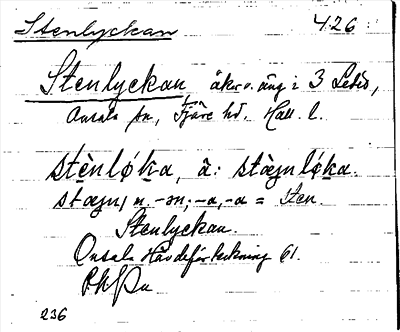 Stenlyckan 4.26:
Stenlyckan, åker o. äng i 3
Onsala sn, Fjäre hd. Hall. l.
stènløka, ä: stæ̀ɲnløka.
stæɲn, n. -ən; -a, -a = sten.
Stenlyckan.
Onsala Hävdeförteckning 61.
236